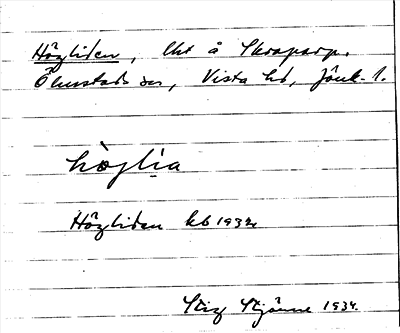 Högliden, lht å Skraparp,
Ölmstads sn, Vista hd, Jönk. l.
hòglia
Högliden kb 1932
Stig Stjärne 1934.